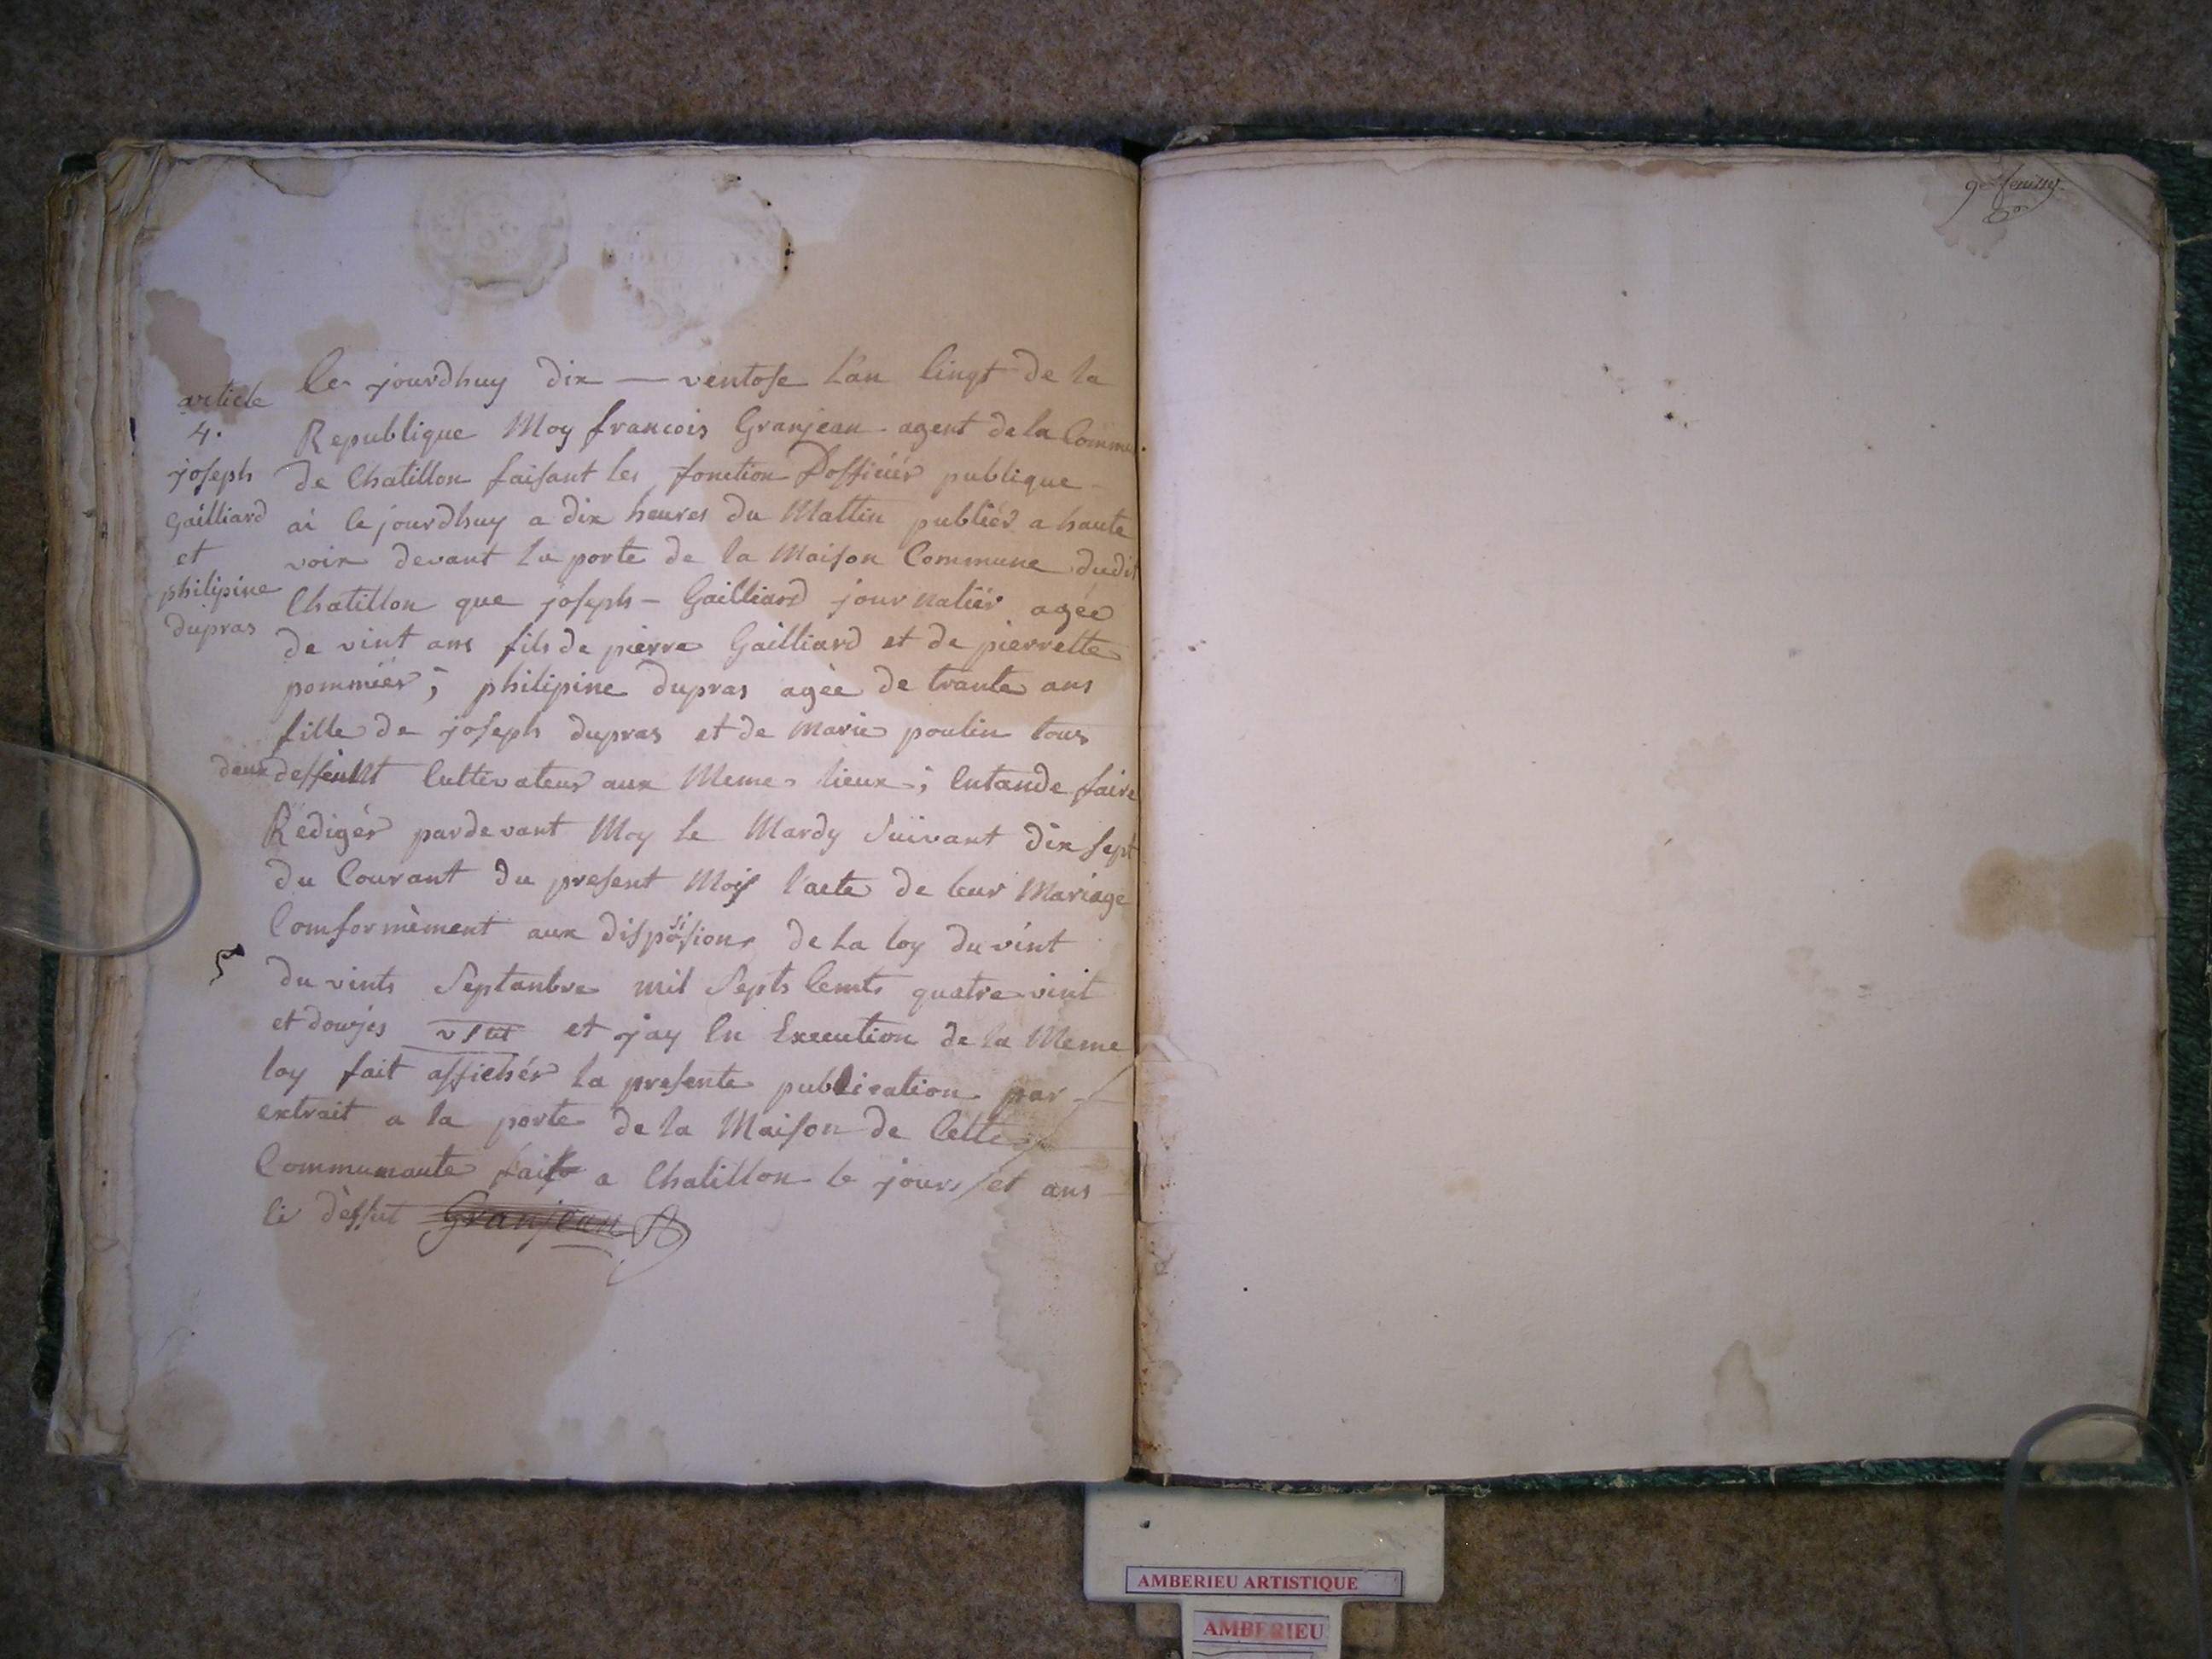 article
4.
joseph
Gailliard
et
philipine
dupras
Ce jourdhuy dix — ventose L'an Cinqt de la
Republique Moy francois Granjean agent de la Commu.
de Chatillon faisant les fonction Dofficiér publique
ai Ce jourdhuy a dix heures du Mattin publiér a haute
voix devant La porte de la Maison Commune dudit
Chatillon que joseph - Gailliard journaliér agée
de vint ans fils de pierre Gailliard et de pierrette
pommiér ; philipine dupras agèe de trante ans
fille de joseph dupras et de Marie poulin tous
deux Cultivateur aux Meme lieux ; Entande faire
Rèdigér pardevant Moy Le Mardy Suivant dix sept
du Courant du present Mois l'acte de leur Mariage
Comformèment aux disposision de La loy du vint
du vints Septanbre mil Septs Cents quatre vint
et douzes et jay En Execution de la Meme
loy fait affichér La presente publication par
extrait a la porte de la Maison de Cette
Communaute fait a Chatillon le jours et ans
Ci dèssut Granjean
AMBERIEU ARTISTIQUE
AMBERIEU